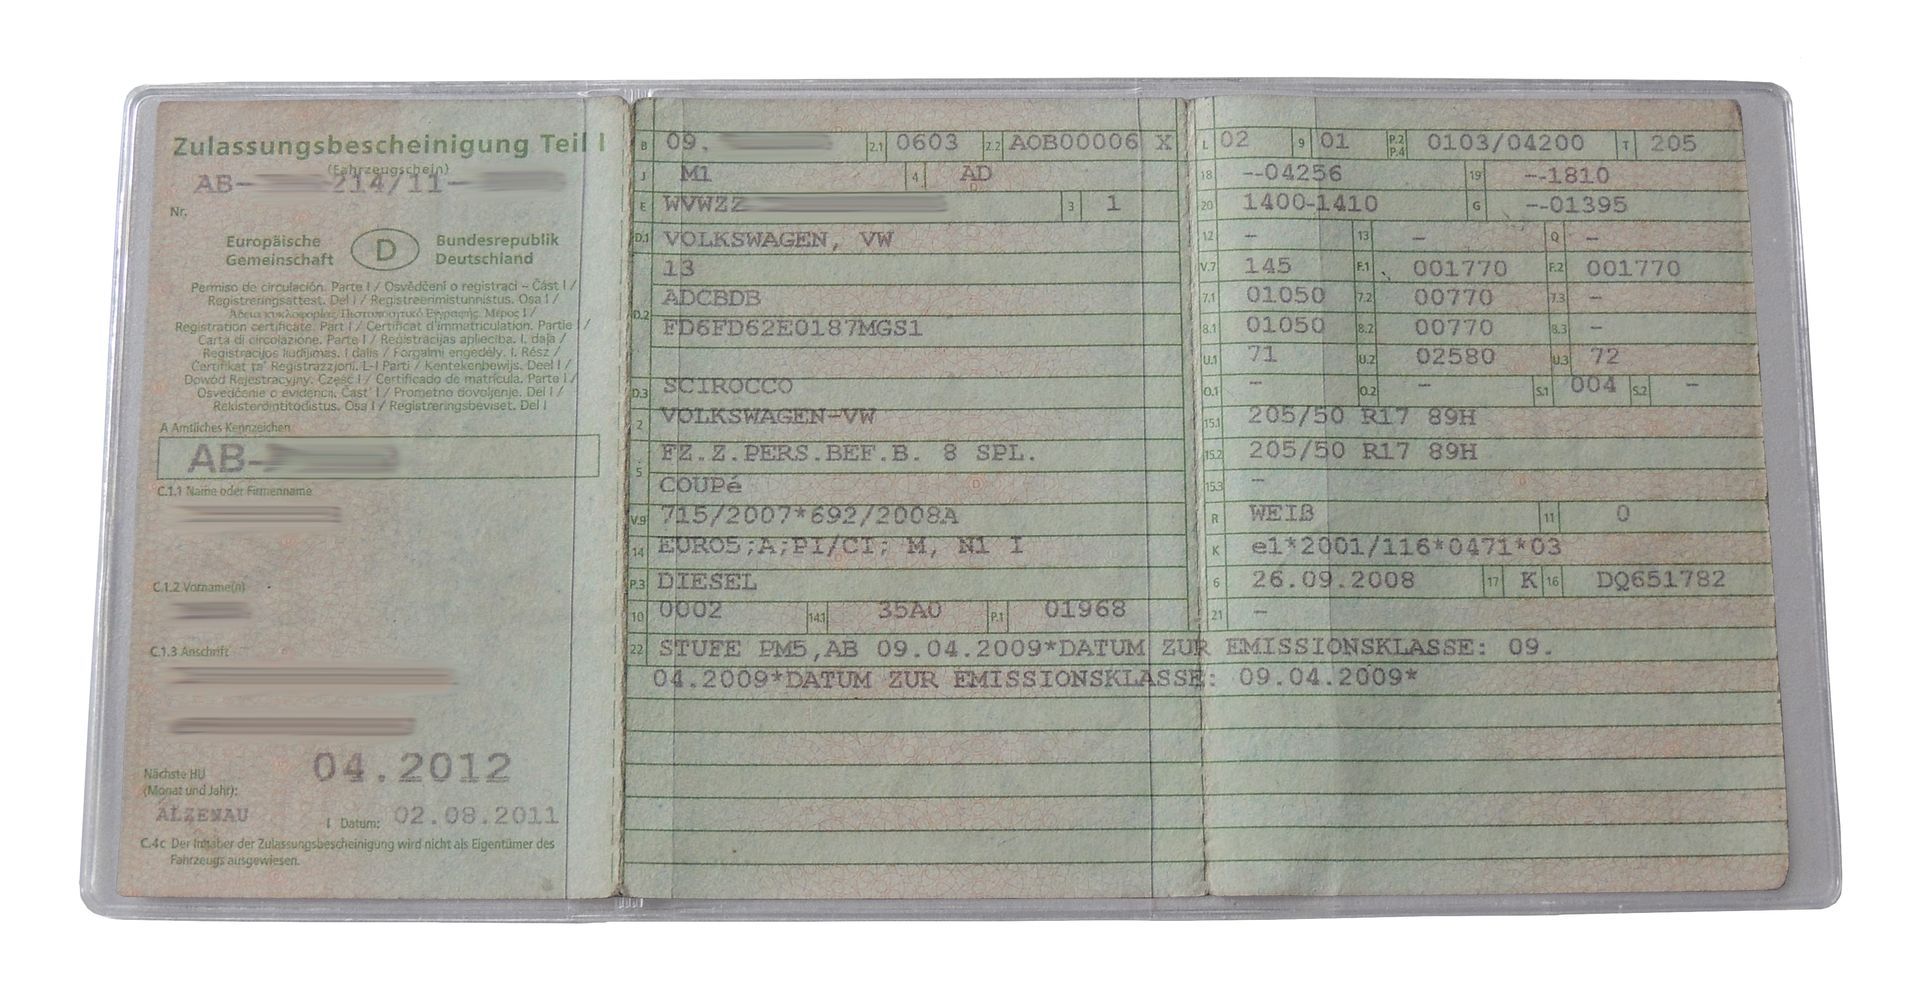 Zulassungsbescheinigung Teil I
(Fahrzeugschein)
AB- 214/11-
Nr.
Europäische Gemeinschaft D Bundesrepublik Deutschland
Permiso de circulación. Parte I / Osvědčení o registraci – Část I /
Registreringsattest. Del I / Registreerimistunnistus. Osa I /
Άδεια κυκλοφορίας. Πιστοποιητικό Εγγραφής. Μέρος I /
Registration certificate. Part I / Certificat d'immatriculation. Partie I /
Carta di circolazione. Parte I / Reģistrācijas apliecība. I. daļa /
Registracijos liudijimas. I dalis / Forgalmi engedély. I. Rész /
Ċertifikat ta' Reġistrazzjoni. L-I Parti / Kentekenbewijs. Deel I /
Dowód Rejestracyjny. Część I / Certificado de matrícula. Parte I /
Osvedčenie o evidencii. Časť I / Prometno dovoljenje. Del I /
Rekisteröintitodistus. Osa I / Registreringsbeviset. Del I
A Amtliches Kennzeichen
AB-
C.1.1 Name oder Firmenname
C.1.2 Vorname(n)
C.1.3 Anschrift
Nächste HU
(Monat und Jahr): 04.2012
ALZENAU I Datum: 02.08.2011
C.4c Der Inhaber der Zulassungsbescheinigung wird nicht als Eigentümer des
Fahrzeugs ausgewiesen.
B 09. 2.1 0603 2.2 AOB00006 X
J M1 4 AD
E WVWZZ 3 1
D.1 VOLKSWAGEN, VW
13
D.2 ADCBDB
FD6FD62E0187MGS1
D.3 SCIROCCO
2 VOLKSWAGEN-VW
5 FZ.Z.PERS.BEF.B. 8 SPL.
COUPé
V.9 715/2007*692/2008A
14 EURO5;A;PI/CI; M, N1 I
P.3 DIESEL
10 0002 14.1 35A0 P.1 01968
22 STUFE PM5,AB 09.04.2009*DATUM ZUR EMISSIONSKLASSE: 09.
04.2009*DATUM ZUR EMISSIONSKLASSE: 09.04.2009*
L 02 9 01 P.2 P.4 0103/04200 T 205
18 --04256 19 --1810
20 1400-1410 G --01395
12 - 13 - Q -
V.7 145 F.1 001770 F.2 001770
7.1 01050 7.2 00770 7.3 -
8.1 01050 8.2 00770 8.3 -
U.1 71 U.2 02580 U.3 72
O.1 - O.2 - S.1 004 S.2 -
15.1 205/50 R17 89H
15.2 205/50 R17 89H
15.3 -
R WEIß 11 0
K e1*2001/116*0471*03
6 26.09.2008 17 K 16 DQ651782
21 -